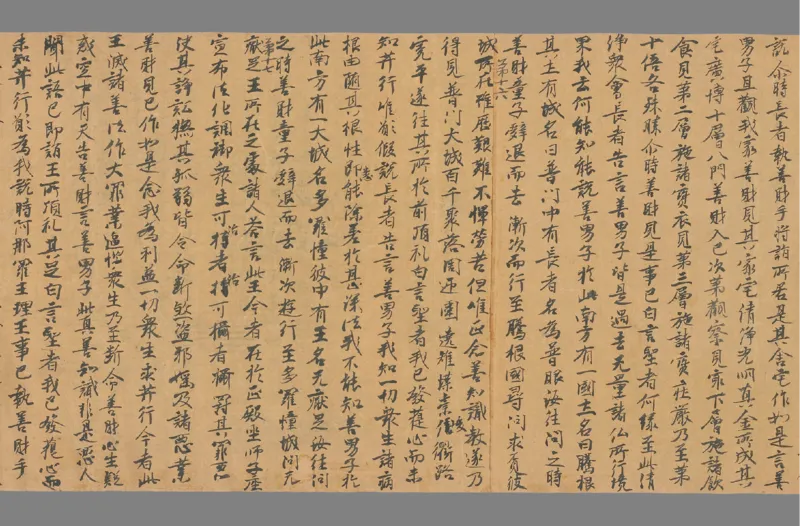 說尒時長者執善財手將詣所居是其舍宅作如是言善
男子且觀我家善財見其家宅清淨光明真金所成其
宅廣博十層八門善財入已次第觀察見最下層施諸飲
食見第二層施諸寶衣見第三層施諸寶莊嚴乃至第
十層各殊勝尒時善財見是事已白言聖者何緣至此清
淨眾會長者告言善男子皆是過去无量諸仏所行境
果我云何能知能說善男子於此南方有一國土名曰騰根
其土有城名曰普門中有長者名為普眼汝往問之時
善財童子辭退而去漸次而行至騰根國尋問求覓彼
第十六
城所在雖歷艱難不憚勞苦但唯正念善知識教遂乃
得見普門大城百千聚落周迊圍遶雉堞崇峻衢路
寬平遂往其所於前頂礼白言聖者我已發菩提心而未
知菩行唯願假說長者告言善男子我知一切眾生諸病
根由隨其根性即能除差於甚深法我不能知善男子於
此南方有一大城名多羅幢彼中有王名无厭足汝往問
之時善財童子辭退而去漸次遊行至多羅幢城問无
第七
厭足王所在之處諸人荅言此王今者在於正殿坐師子座
宣布法化調御眾生可治者治可攝者攝尋其罪惡
決其諍訟撫其孤弱皆令命斷欽盜邪婬乃諸惡業
善財見已作如是念我為利益一切眾生求菩行今者此
王滅諸善法作大罪業逼惱眾生乃至斷命善財心生疑
惑空中有天告善財言善男子此真善知識非是惡人
聞此語已即詣王所頂礼其足白言聖者我已發菩提心而
未知菩行願為我說時阿那羅王理王事已執善財手